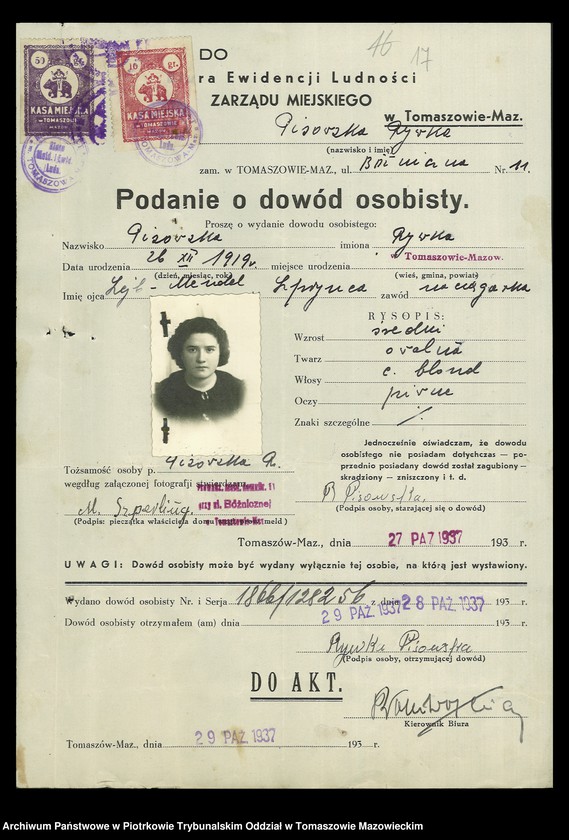 16 17
50 gr.
KASA MIEJSKA
w TOMASZOWIE
MAZOW.
10 gr.
KASA MIEJSKA
w TOMASZOWIE
MAZOW.
DO
ra Ewidencji Ludności
ZARZĄDU MIEJSKIEGO
w Tomaszowie-Maz.
Pisowska Rywka
(nazwisko i imię)
zam. w TOMASZOWIE-MAZ., ul. Bóżniczna Nr. 11.
Podanie o dowód osobisty.
Proszę o wydanie dowodu osobistego:
Nazwisko Pisowska imiona Rywka
Data urodzenia 26 XII 1919r. miejsce urodzenia w Tomaszowie-Mazow.
(dzień, miesiąc, rok) (wieś, gmina, powiat)
Imię ojca - Mendel zawód
RYSOPIS:
Wzrost średni
Twarz owalna
Włosy c. blond
Oczy piwne
Znaki szczególne ./.
Jednocześnie oświadczam, że dowodu
osobistego nie posiadam dotychczas — po-
przednio posiadany dowód został zagubiony —
skradziony — zniszczony i t. d.
Tożsamość osoby p. Pisowska R.
według załączonej fotografii stwierdzam.
przy ul. Bóżnicznej
w Tomaszowie-Maz.
M. Szperling.
(Podpis: pieczątka właściciela domu meld)
R Pisowska.
(Podpis osoby, starającej się o dowód)
Tomaszów-Maz., dnia 27 PAŹ 1937 193 r.
UWAGI: Dowód osobisty może być wydany wyłącznie tej osobie, na którą jest wystawiony.
Wydano dowód osobisty Nr. i Serja 1866/128256 z dnia 28 PAŹ. 1937 193 r.
Dowód osobisty otrzymałem (am) dnia 29 PAŹ 1937 193 r.
Rywka Pisowska
(Podpis osoby, otrzymującej dowód)
DO AKT.
Kierownik Biura
Tomaszów-Maz., dnia 29 PAŹ. 1937 193 r.
Archiwum Państwowe w Piotrkowie Trybunalskim Oddział w Tomaszowie Mazowieckim